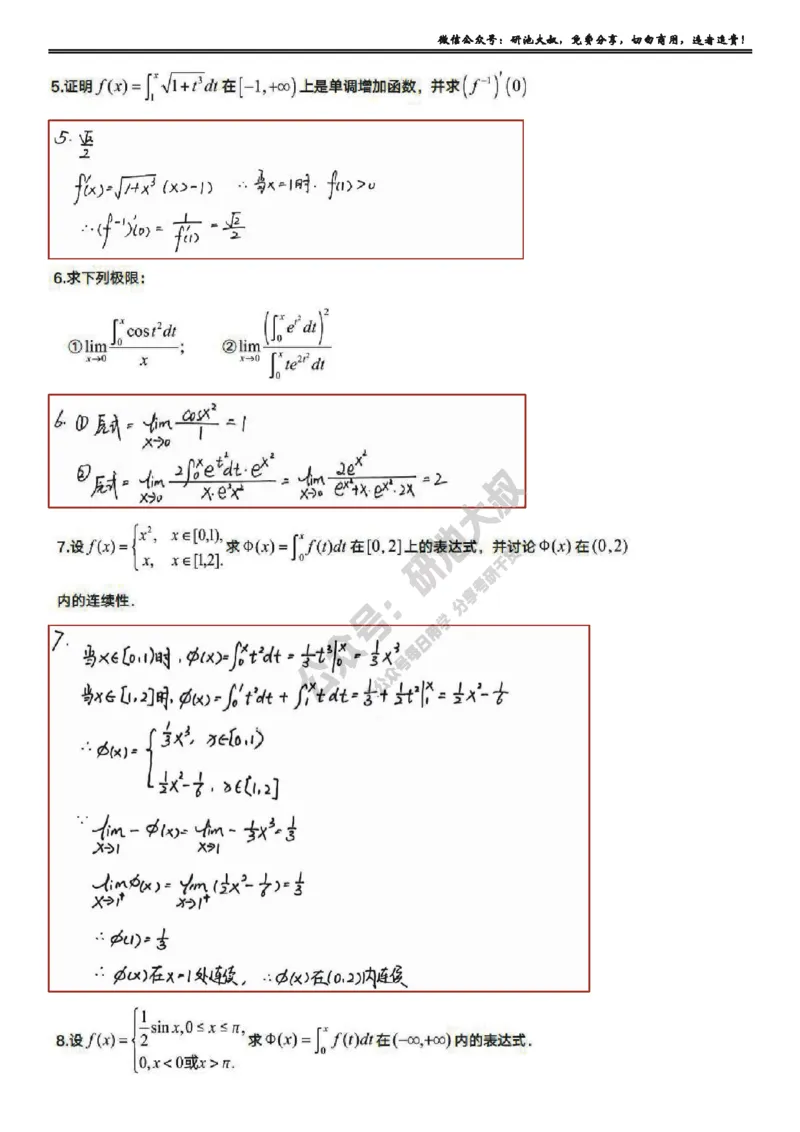 微信公众号：研池大叔，免费分享，切勿商用，违者追责！
5.证明 f(x)=∫₁ˣ √(1+t³) dt 在[-1,+∞)上是单调增加函数，并求(f⁻¹)′(0)
5. √2/2
f′(x)=√(1+x³) (x>-1) ∴当x=1时. f′(1)>0
∴(f⁻¹)′(0)=1/f′(1)=√2/2
6.求下列极限：
①lim_{x→0} (∫₀ˣ cost²dt)/x； ②lim_{x→0} (∫₀ˣ e^{t²}dt)²/(∫₀ˣ te^{2t²}dt)
6. ① 原式=lim_{x→0} cosx²/1=1
② 原式=lim_{x→0} (2∫₀ˣe^{t²}dt·e^{x²})/(x·e^{2x²})=lim_{x→0} 2e^{x²}/(e^{x²}+x·e^{x²}·2x)=2
7.设f(x)={x², x∈[0,1), x, x∈[1,2]. 求Φ(x)=∫₀ˣ f(t)dt在[0,2]上的表达式，并讨论Φ(x)在(0,2)
内的连续性.
7.
当x∈[0,1)时，φ(x)=∫₀ˣt²dt=1/3t³|₀ˣ=1/3x³
当x∈[1,2]时，φ(x)=∫₀¹t²dt+∫₁ˣtdt=1/3+1/2t²|₁ˣ=1/2x²-1/6
∴φ(x)={1/3x³, x∈[0,1)
1/2x²-1/6, x∈[1,2]
∵lim_{x→1}-φ(x)=lim_{x→1}-1/3x³=1/3
lim_{x→1⁺}φ(x)=lim_{x→1⁺}(1/2x²-1/6)=1/3
∴φ(1)=1/3
∴φ(x)在x=1处连续，∴φ(x)在(0,2)内连续
8.设f(x)={1/2 sinx,0≤x≤π, 0,x<0或x>π. 求Φ(x)=∫₀ˣ f(t)dt在(-∞,+∞)内的表达式.
公众号：研池大叔
公众号每日常学 分享考研干货